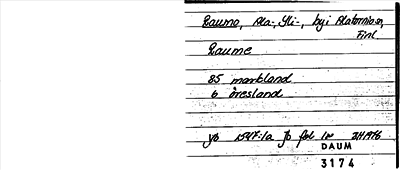 Raumo, Ala-, Yli-, byi Alatornio sn,
Finl.
Raume
25 markland
6 öresland
yb 1547:1a Jb fol 1v 2HA96
DAUM
3174